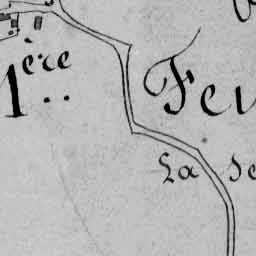 1ère.. Feu
La Se